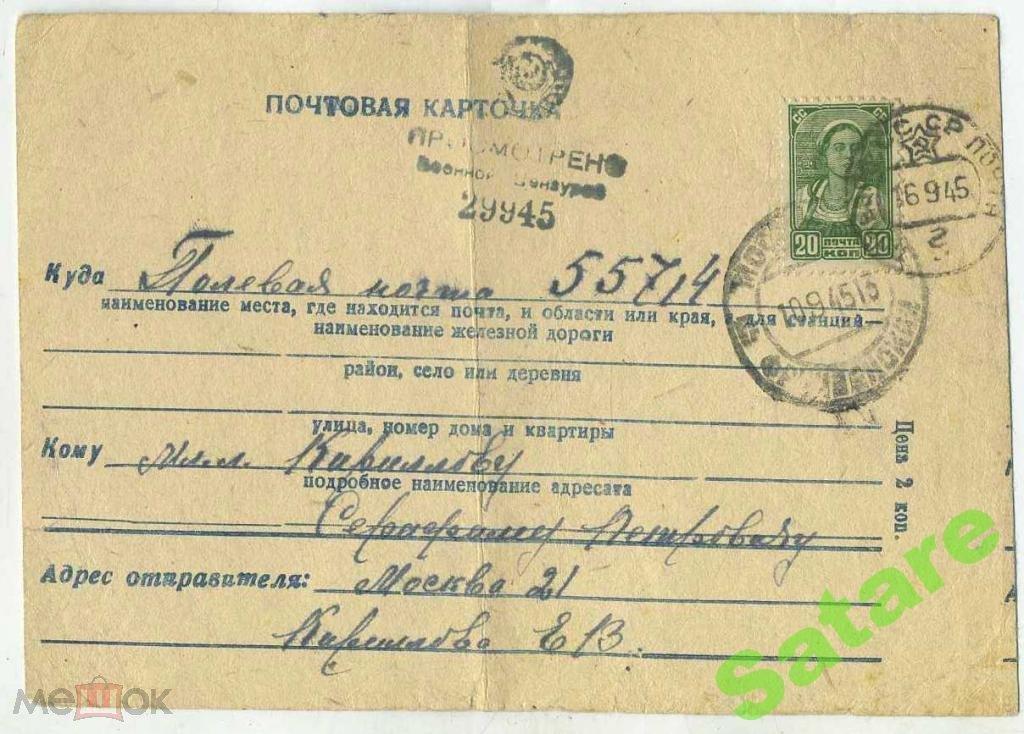 ПОЧТОВАЯ КАРТОЧКА
ПРОСМОТРЕНО
Военной Цензурой
29945
СС СР
20 ПОЧТА 20
КОП
СССР ПОЧТА
16 9 45
2
10 9 45 13
Куда Полевая почта 55714
наименование места, где находится почта, и области или края, а для станций—
наименование железной дороги
район, село или деревня
улица, номер дома и квартиры
Кому мл.л. Кириллову
подробное наименование адресата
Серафиму Петровичу
Адрес отправителя: Москва 21
Кириллова Е В.
Цена 2 коп.
Satare
МЕШОК